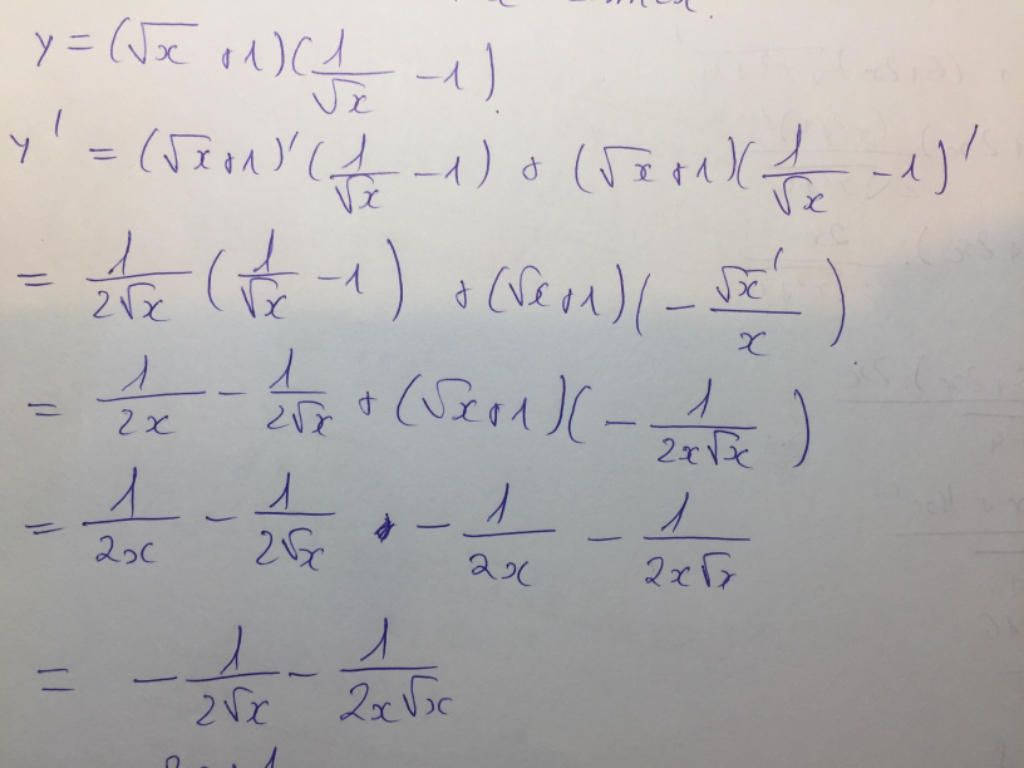 y = (√x + 1)(1/√x - 1)
y' = (√x + 1)'(1/√x - 1) + (√x + 1)(1/√x - 1)'
= 1/(2√x) (1/√x - 1) + (√x + 1)(- √x'/x)
= 1/(2x) - 1/(2√x) + (√x + 1)(- 1/(2x√x))
= 1/(2x) - 1/(2√x) - 1/(2x) - 1/(2x√x)
= - 1/(2√x) - 1/(2x√x)